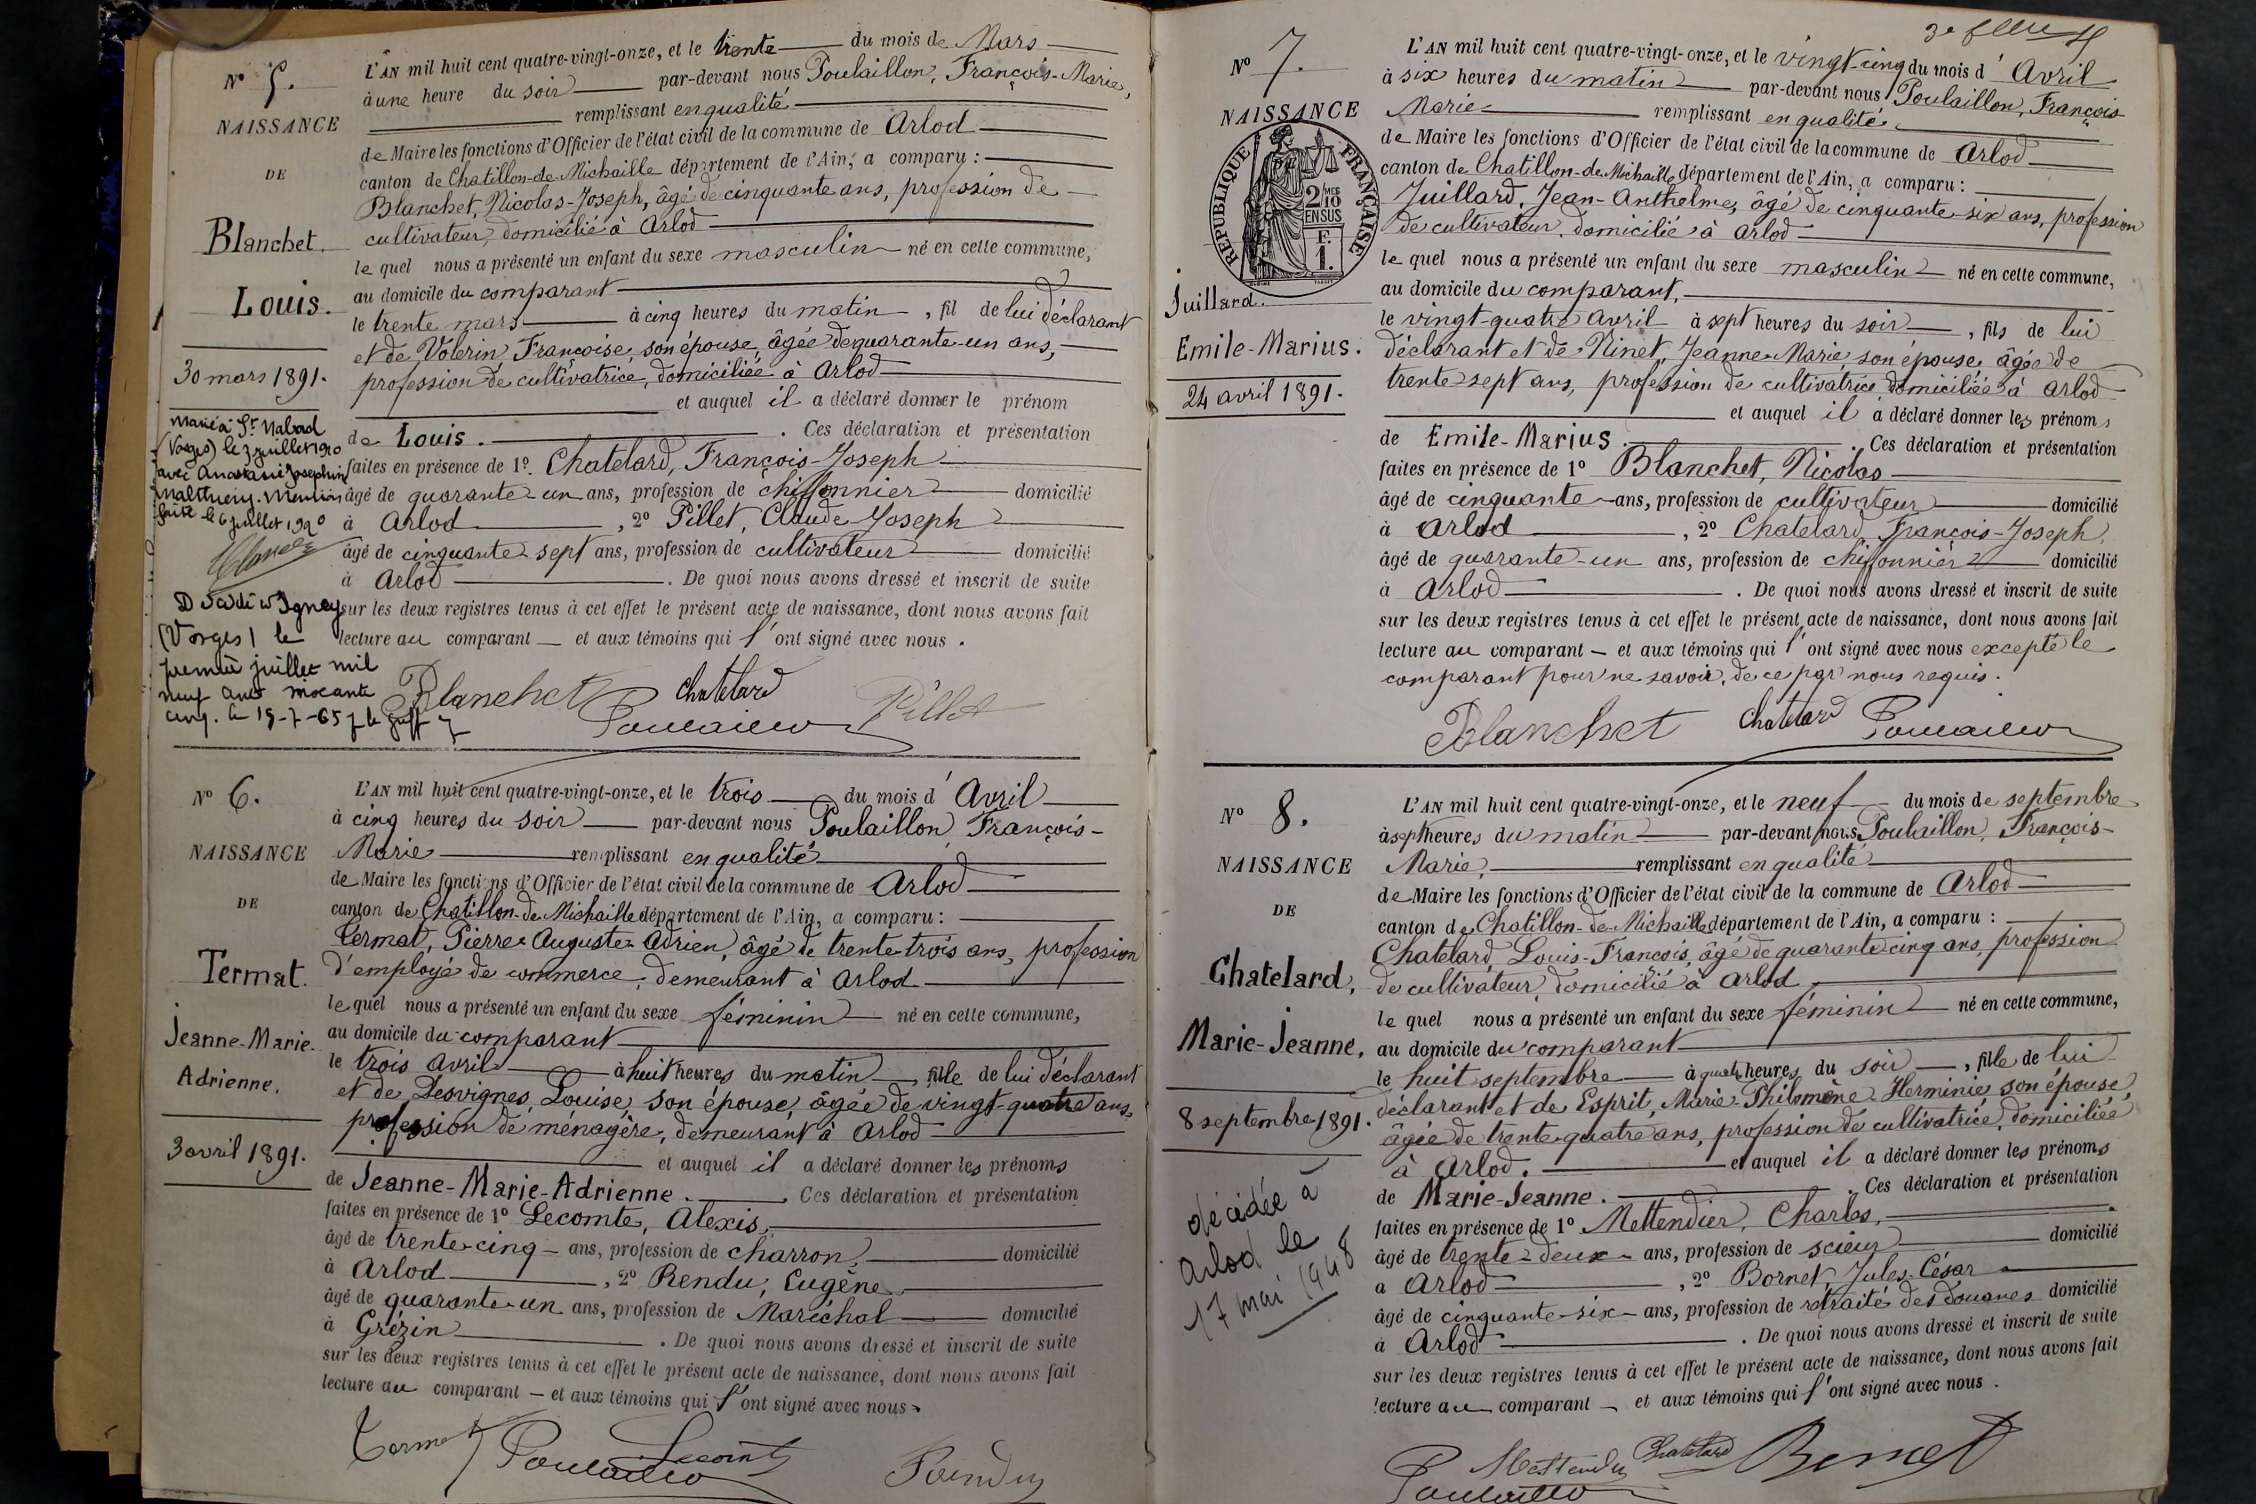 N° 5.
NAISSANCE
DE
Blanchet.
Louis.
30 mars 1891.
Marié à St Nabord
(Vosges) le 3 juillet 1920
avec Anastasie Josephine
Malthiery. Mention
faite le 6 juillet 1920
Décédé à Igney
(Vosges) le
premier juillet mil
neuf cent soixante
cinq. Le 19-7-65
L'AN mil huit cent quatre-vingt-onze, et le trente du mois de Mars
à une heure du soir par-devant nous Poulaillon, François-Marie,
remplissant en qualité
de Maire les fonctions d'Officier de l'état civil de la commune de Arlod
canton de Chatillon-de-Michaille département de l'Ain, a comparu :
Blanchet, Nicolas-Joseph, âgé de cinquante ans, profession de
cultivateur, domicilié à Arlod
le quel nous a présenté un enfant du sexe masculin né en cette commune,
au domicile du comparant
le trente mars à cinq heures du matin, fil de lui déclarant
et de Volerin Françoise, son épouse, âgée de quarante-un ans,
profession de cultivatrice, domiciliée à Arlod
et auquel il a déclaré donner le prénom
de Louis. . Ces déclaration et présentation
faites en présence de 1° Chatelard, François-Joseph
âgé de quarante-un ans, profession de chiffonnier domicilié
à Arlod , 2° Pillet, Claude Joseph
âgé de cinquante-sept ans, profession de cultivateur domicilié
à Arlod . De quoi nous avons dressé et inscrit de suite
sur les deux registres tenus à cet effet le présent acte de naissance, dont nous avons fait
lecture au comparant et aux témoins qui l'ont signé avec nous.
Blanchet Chatelard Pillet
Poulaillon
N° 6.
NAISSANCE
DE
Termat.
Jeanne-Marie-
Adrienne.
3 avril 1891.
L'AN mil huit cent quatre-vingt-onze, et le trois du mois d'Avril
à cinq heures du soir par-devant nous Poulaillon, François-
Marie remplissant en qualité
de Maire les fonctions d'Officier de l'état civil de la commune de Arlod
canton de Chatillon-de-Michaille département de l'Ain, a comparu :
Termat, Pierre-Auguste-Adrien, âgé de trente-trois ans, profession
d'employé de commerce, demeurant à Arlod
le quel nous a présenté un enfant du sexe féminin né en cette commune,
au domicile du comparant
le trois avril à huit heures du matin, fille de lui déclarant
et de Desvignes, Louise, son épouse, âgée de vingt-quatre ans,
profession de ménagère, demeurant à Arlod
et auquel il a déclaré donner les prénoms
de Jeanne-Marie-Adrienne. . Ces déclaration et présentation
faites en présence de 1° Lecomte, Alexis,
âgé de trente-cinq ans, profession de charron, domicilié
à Arlod , 2° Rendu, Eugène
âgé de quarante-un ans, profession de Maréchal domicilié
à Grézin . De quoi nous avons dressé et inscrit de suite
sur les deux registres tenus à cet effet le présent acte de naissance, dont nous avons fait
lecture au comparant et aux témoins qui l'ont signé avec nous.
Termat Poulaillon Lecomte Rendu
3e feuillet
N° 7.
NAISSANCE
RÉPUBLIQUE FRANÇAISE
2 MES 10
EN SUS
F.
1.
Juillard.
Emile-Marius.
24 avril 1891.
L'AN mil huit cent quatre-vingt-onze, et le vingt-cinq du mois d'Avril
à six heures du matin par-devant nous Poulaillon, François-
Marie remplissant en qualité
de Maire les fonctions d'Officier de l'état civil de la commune de Arlod
canton de Chatillon-de-Michaille département de l'Ain, a comparu :
Juillard, Jean-Anthelme, âgé de cinquante-six ans, profession
de cultivateur, domicilié à Arlod
le quel nous a présenté un enfant du sexe masculin né en cette commune,
au domicile du comparant,
le vingt-quatre Avril à sept heures du soir, fils de lui
déclarant et de Ninet, Jeanne-Marie, son épouse, âgée de
trente-sept ans, profession de cultivatrice, domiciliée à Arlod
et auquel il a déclaré donner les prénoms
de Emile-Marius. . Ces déclaration et présentation
faites en présence de 1° Blanchet, Nicolas
âgé de cinquante ans, profession de cultivateur domicilié
à Arlod , 2° Chatelard, François-Joseph,
âgé de quarante-un ans, profession de chiffonnier domicilié
à Arlod . De quoi nous avons dressé et inscrit de suite
sur les deux registres tenus à cet effet le présent acte de naissance, dont nous avons fait
lecture au comparant et aux témoins qui l'ont signé avec nous excepté le
comparant pour ne savoir, de ce par nous requis.
Blanchet Chatelard Poulaillon
N° 8.
NAISSANCE
DE
Chatelard,
Marie-Jeanne,
8 septembre 1891.
décédée à
Arlod le
17 mai 1948
L'AN mil huit cent quatre-vingt-onze, et le neuf du mois de septembre
à sept heures du matin par-devant nous Poulaillon, François-
Marie, remplissant en qualité
de Maire les fonctions d'Officier de l'état civil de la commune de Arlod
canton de Chatillon-de-Michaille département de l'Ain, a comparu :
Chatelard, Louis-François, âgé de quarante-cinq ans, profession
de cultivateur, domicilié à Arlod
le quel nous a présenté un enfant du sexe féminin né en cette commune,
au domicile du comparant
le huit septembre à quatre heures du soir, fille de lui
déclarant et de Esprit, Marie-Philomène-Herminie, son épouse,
âgée de trente-quatre ans, profession de cultivatrice, domiciliée
à Arlod. et auquel il a déclaré donner les prénoms
de Marie-Jeanne. . Ces déclaration et présentation
faites en présence de 1° Mettendier, Charles,
âgé de trente-deux ans, profession de scieur domicilié
a Arlod , 2° Bornet, Jules-César
âgé de cinquante-six ans, profession de retraités des douanes domicilié
à Arlod . De quoi nous avons dressé et inscrit de suite
sur les deux registres tenus à cet effet le présent acte de naissance, dont nous avons fait
lecture au comparant et aux témoins qui l'ont signé avec nous.
Mettendier Chatelard Bornet
Poulaillon